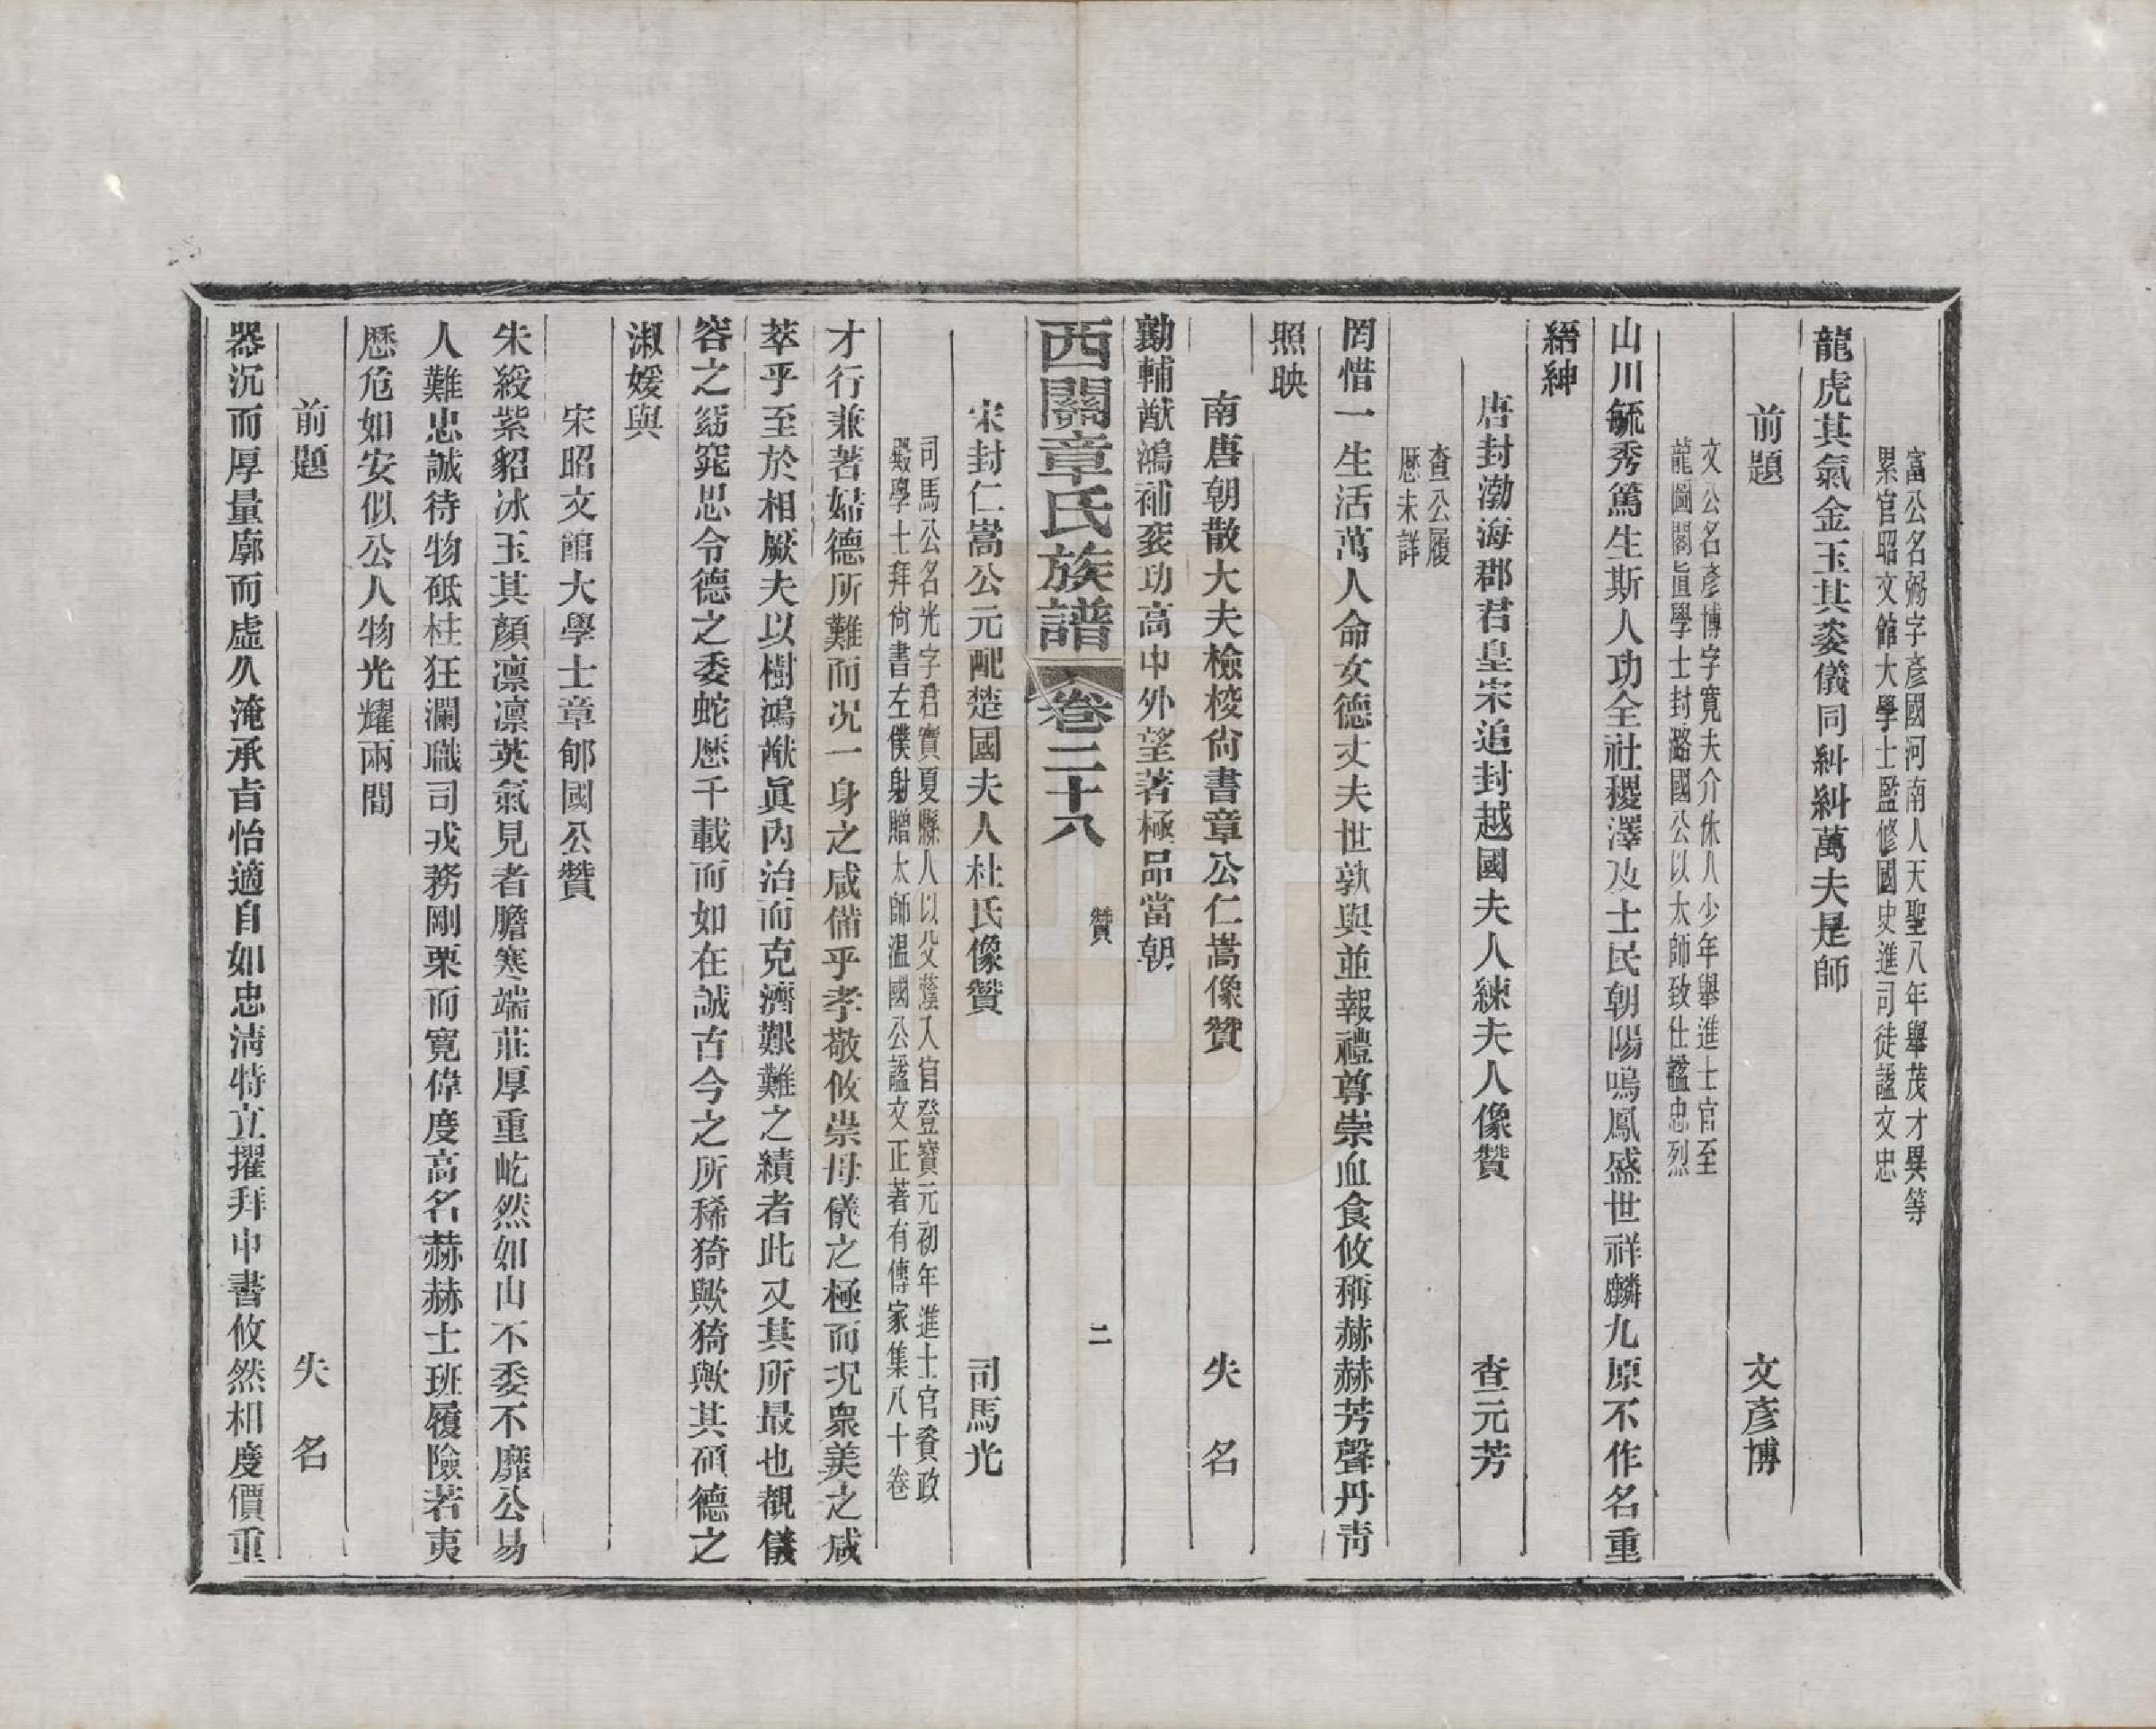 富公名弼字彥國河南人天聖八年舉茂才異等
累官昭文館大學士監修國史進司徒諡文忠
龍虎其氣金玉其姿儀同糾糾萬夫是師
前題 文彥博
文公名彥博字寬夫介休人少年舉進士官至
龍圖閣直學士封潞國公以太師致仕諡忠烈
山川毓秀篤生斯人功全社稷澤及士民朝陽鳴鳳盛世祥麟九原不作名重
縉紳
唐封渤海郡君皇宋追封越國夫人練夫人像贊 查元芳
查公履
歷未詳
罔惜一生活萬人命女德丈夫世孰與並報禮尊崇血食攸稱赫赫芳聲丹青
照映
南唐朝散大夫檢校尙書章公仁嵩像贊 失名
勷輔猷鴻補袞功高中外望著極品當朝
西關章氏族譜 卷二十八 贊 二
宋封仁嵩公元配楚國夫人杜氏像贊 司馬光
司馬公名光字君實夏縣人以父蔭入官登寶元初年進士官資政
殿學士拜尙書左僕射贈太師溫國公諡文正著有傳家集八十卷
才行兼著婦德所難而况一身之咸備乎孝敬攸崇母儀之極而況衆美之咸
萃乎至於相厥夫以樹鴻猷眞內治而克濟艱難之績者此又其所最也覩儀
容之窈窕思令德之委蛇歷千載而如在誠古今之所稀猗歟猗歟其碩德之
淑媛與
宋昭文館大學士章郇國公贊
朱綬紫貂冰玉其顏凛凛英氣見者膽寒端莊厚重屹然如山不委不靡公易
人難忠誠待物砥柱狂瀾職司戎務剛栗而寬偉度高名赫赫士班履險若夷
歷危如安似公人物光耀兩間
前題 失名
器沉而厚量廓而虛久淹承旨怡適自如忠淸特立擢拜中書攸然相度價重